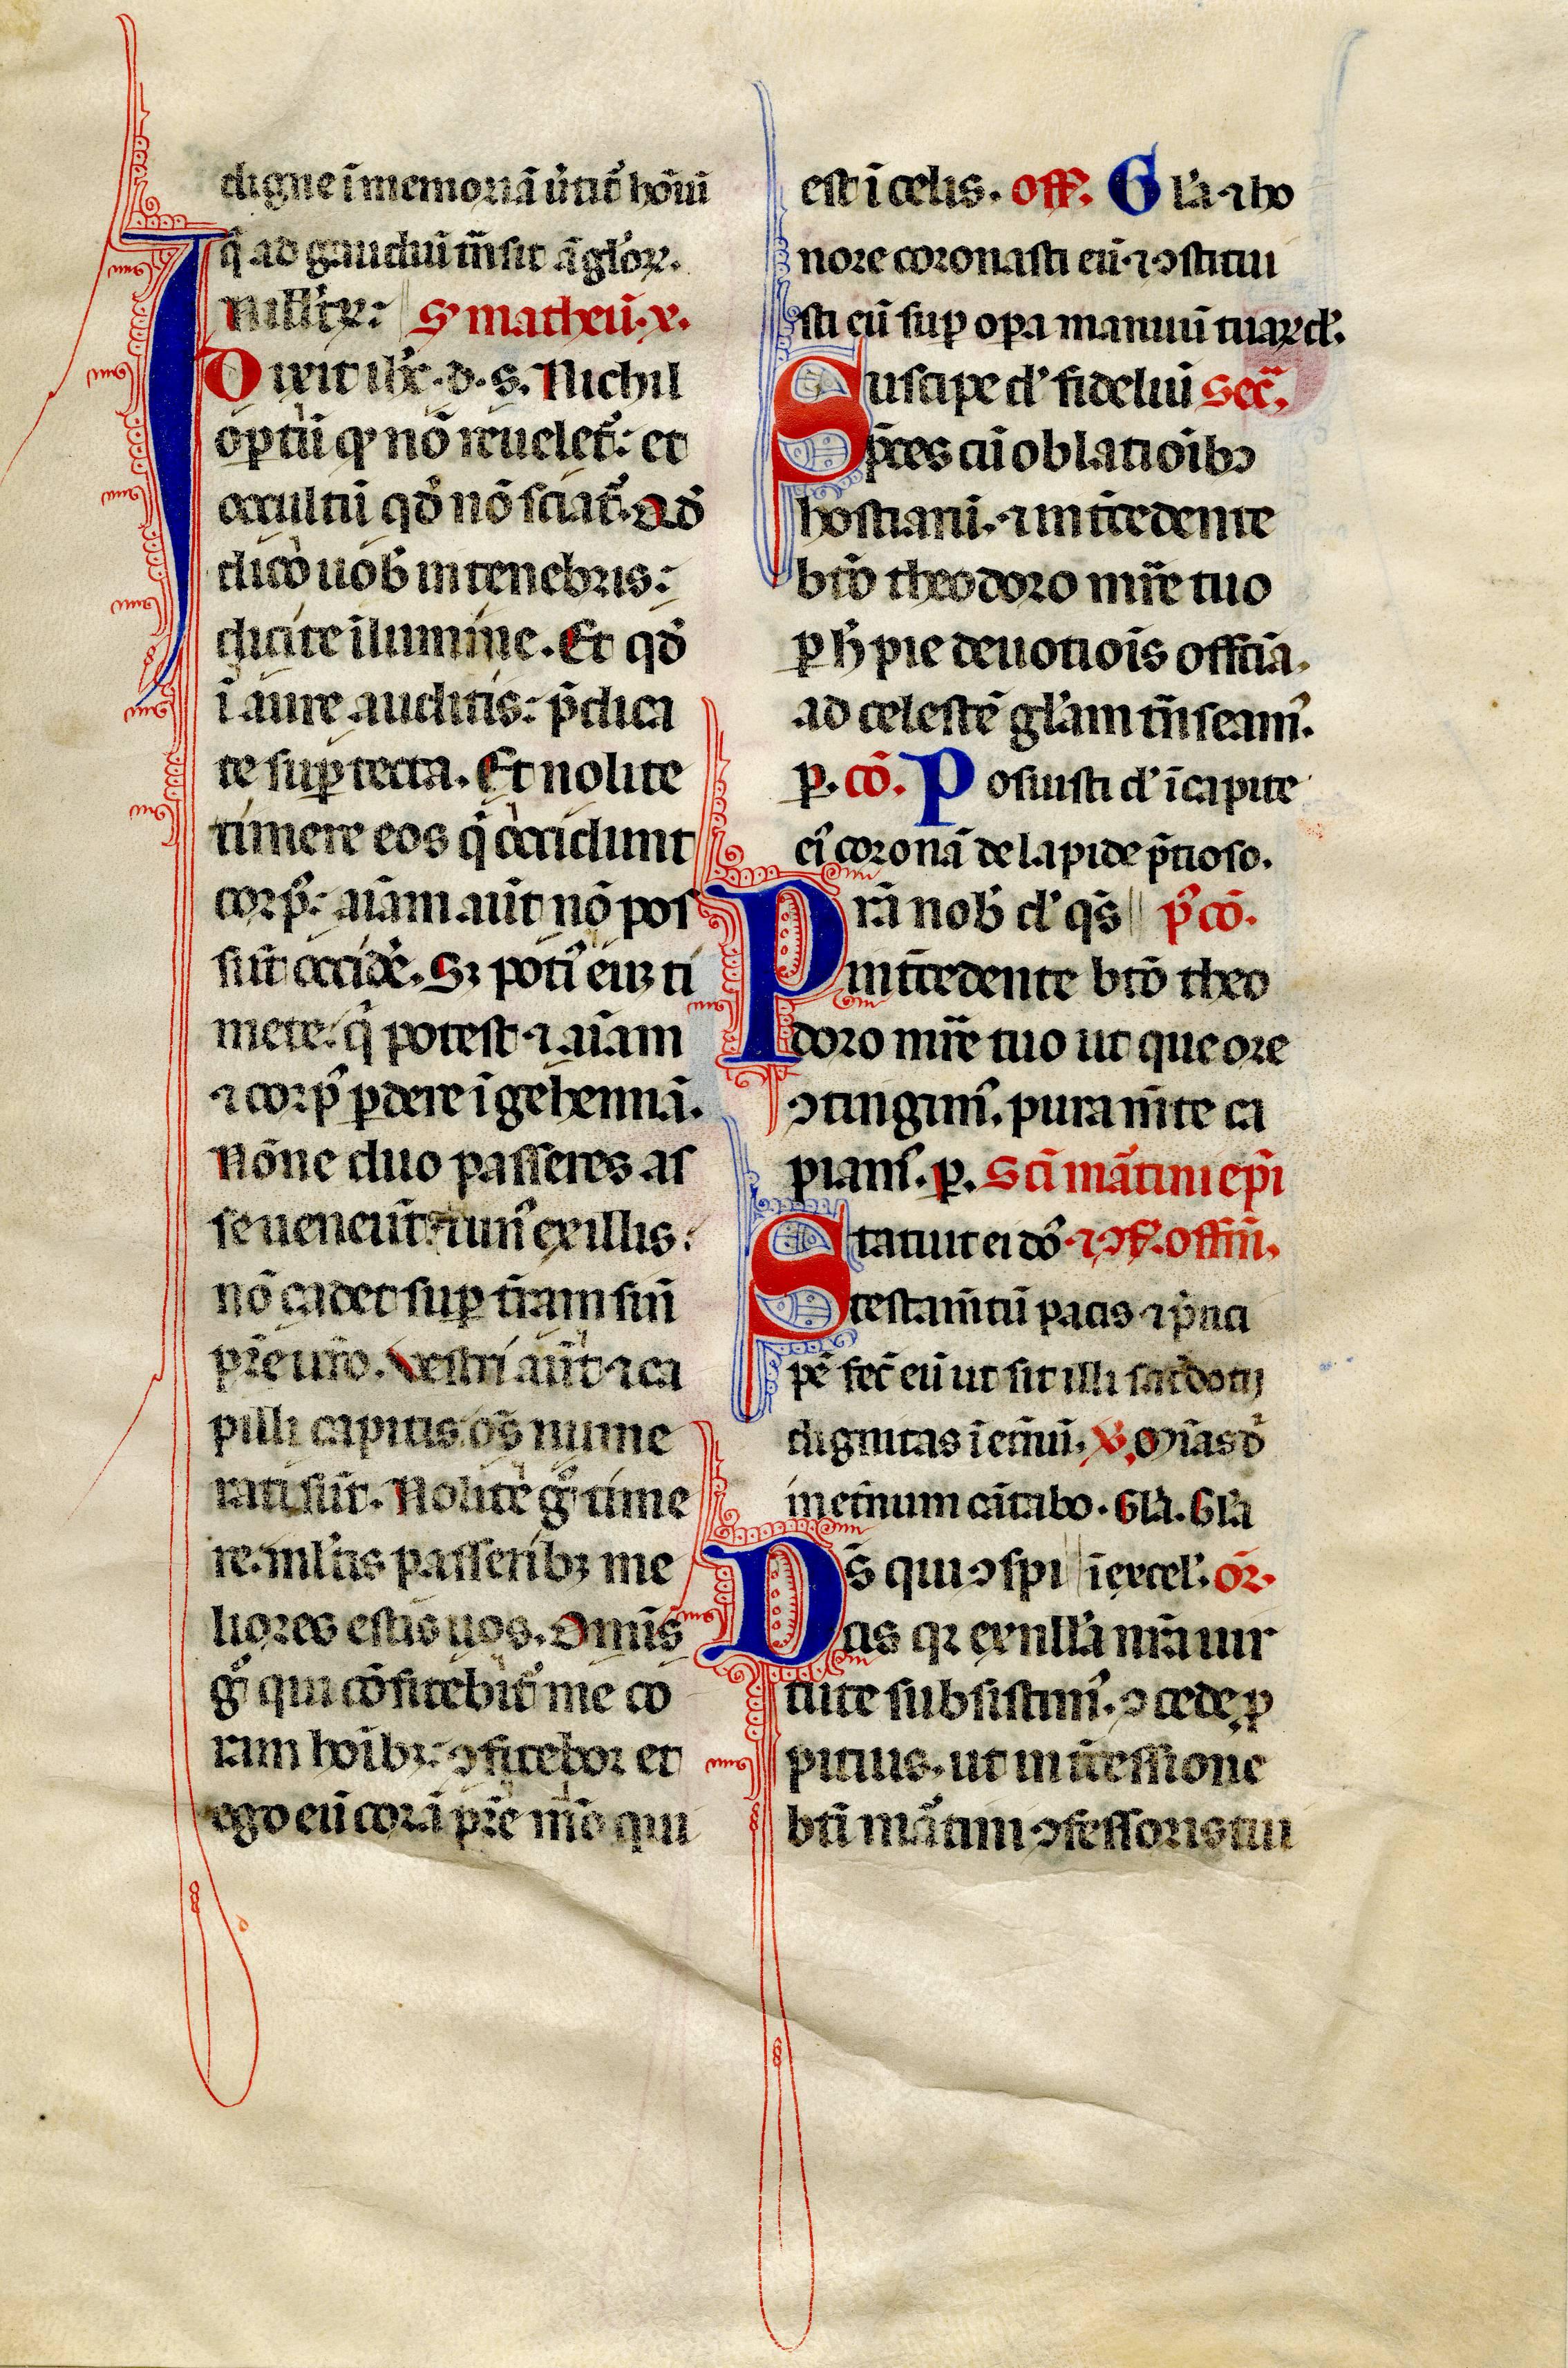 digne ī memoriā ūtit̃ hōıū
q̄ ad gaudiū trn̄sit āglo᷑ꝝ.
Nill᷑ꝝ: S᷑ matheū. x.
Dixit ih̄c. d. s. Nichil
op̄tū qᷓ nō reuelet᷑: et
occultū qd̄ nō sciat᷑. Qd̄
dico uob̄ in tenebris:
dicite ī lumine. Et qd̄
ī aure auditis: p̄dica
te suꝑ tecta. Et nolite
timere eos q̄ occidunt
corpꝰ: aīam aūt nō pos
sūt occidē. Sꝫ potiꝰ eūꝫ ti
mete: q̄ potest ⁊ aīam
⁊ corpꝰ ꝑdere ī gehennā.
Nōne duo passeres as
se ueneūt: ⁊ unꝰ ex illis
nō cadet suꝑ tr̄am sīn
pr̄e ur̄o. Vestri aūt ⁊ ca
pilli capitis om̄s nume
rati sūt. Nolite ḡ time
re. ml̄tis passeribꝫ me
liores estis uos. Omīs
ḡ qui cōfitebit᷑ me co
ram hoībꝫ: ↄfitebor et
ego eū corā pr̄e mō qui
est ī celis. off. Gl̄a ⁊ ho
nore coronasti eū ⁊ ↄstitu
isti eū suꝑ opa manuū tuaꝝ d᷑.
Suscipe d᷑ fidelīū sec̄.
p̄ces cū oblatioībꝫ
hostiarū. ⁊ int̄cedente
btō theodoro mr̄e tuo
ꝑ h̄ pie deuotioīs offīcia.
ad celestē gl̄am trn̄seamꝰ.
ꝑ. cō. Posuisti d᷑ ī capite
eiꝰ coronā de lapide p̄tioso.
Pr̄a nob̄ d᷑ qs̄ pꝰcō.
int̄cedente btō theo
doro mr̄e tuo ut que ore
ↄtingimꝰ. pura mīte ca
piamꝰ. ꝑ. Scī mātini epī
Statuit ei dōꝰ ⁊ ↄf. offīū.
testamītū pacis ⁊ p̄nci
pē fec̄ eū ut sit illi sac̄dotij
dignitas ī et̄nū. ℣. Mīas d̄
in et̄num cātabo. Gl̄a. Gl̄a
Ds̄ qui ↄspi ī excel᷑. or̄.
cis qꝛ ex null̄a nr̄a uir
tute subsistimꝰ. ↄcede ꝓ
pitius. ut int̄cessione
btī mātini ↄfessoris tui